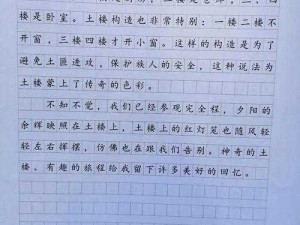 楼是卧室。土楼构造也非常特别：一楼二楼不
开窗，三楼四楼才开小窗。这样的构造是为了
避免土匪进攻，保护族人的安全，这种说法为
土楼蒙上了传奇的色彩。
不知不觉，我们已经参观完全程，夕阳的
余辉映照在土楼上，土楼上的红灯笼也随风轻
轻左右摆摆，仿佛也在跟我们告别。神奇的土
楼、有趣的旅程给我留下许多美好的回忆。